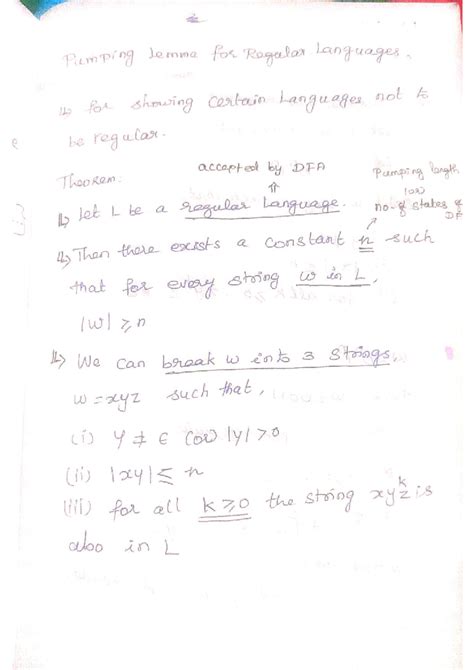 Pumping lemma for Regular Languages.
↳ for showing certain Languages not to
be regular.
accepted by DFA
Pumping length
Theorem:
⇑
(or)
↳ let L be a regular Language.
no. of states of
DF
↳ Then there exists a constant n such
that for every string w in L,
|w| ≥ n
↳ We can break w into 3 strings,
w = xyz such that,
(i) y ≠ ϵ (or) |y| > 0
(ii) |xy| ≤ n
(iii) for all k ≥ 0 the string xy^k z is
also in L